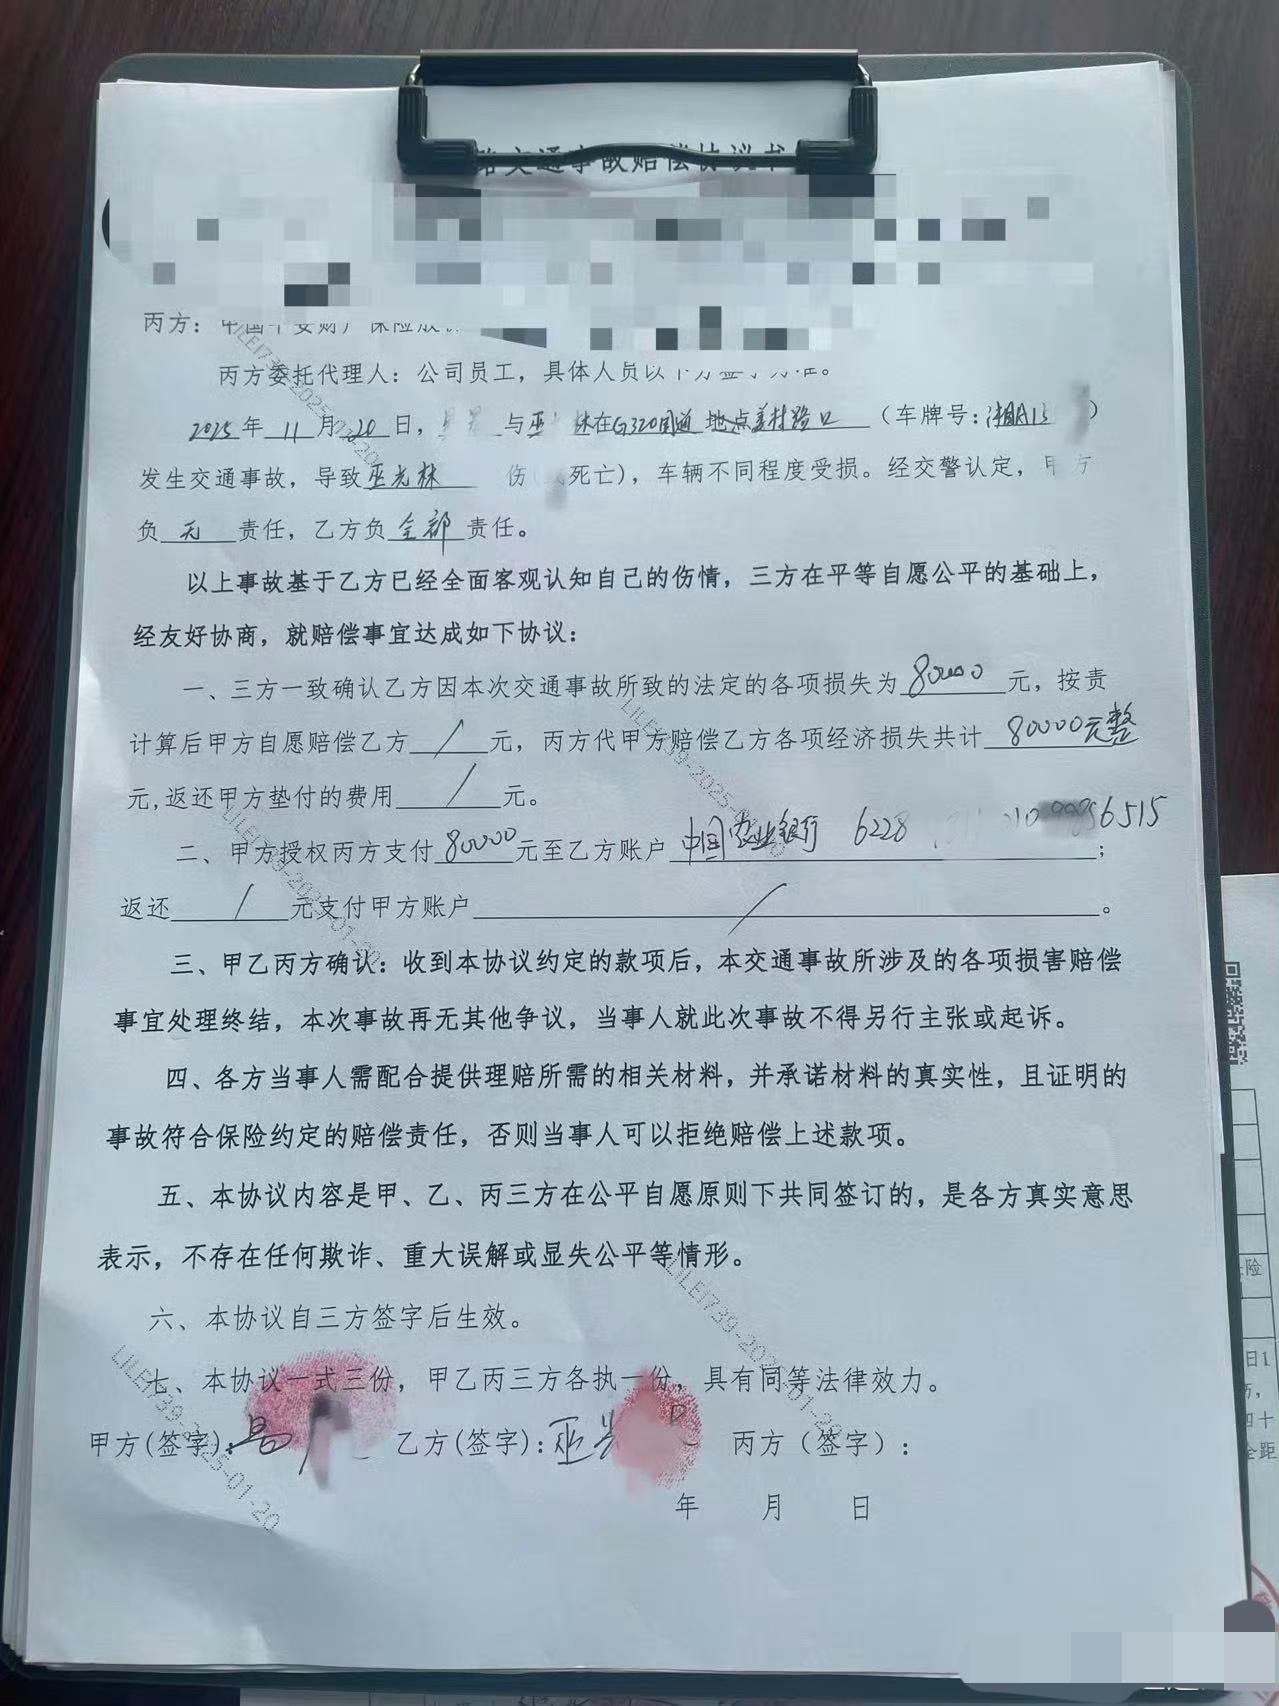 路交通事故赔偿协议书
丙方：中国平安财产保险股份
丙方委托代理人：公司员工，具体人员以下方签字为准。
2025年11月20日，与巫 林在G320国道 地点姜村路口（车牌号：湘A13 ）
发生交通事故，导致巫光林 伤（ 死亡），车辆不同程度受损。经交警认定，甲方
负无责任，乙方负全部责任。
以上事故基于乙方已经全面客观认知自己的伤情，三方在平等自愿公平的基础上，
经友好协商，就赔偿事宜达成如下协议：
一、三方一致确认乙方因本次交通事故所致的法定的各项损失为80000元，按责
计算后甲方自愿赔偿乙方/元，丙方代甲方赔偿乙方各项经济损失共计80000元整
元,返还甲方垫付的费用/元。
二、甲方授权丙方支付80000元至乙方账户中国农业银行 6228 10 9956515；
返还/元支付甲方账户/。
三、甲乙丙方确认：收到本协议约定的款项后，本交通事故所涉及的各项损害赔偿
事宜处理终结，本次事故再无其他争议，当事人就此次事故不得另行主张或起诉。
四、各方当事人需配合提供理赔所需的相关材料，并承诺材料的真实性，且证明的
事故符合保险约定的赔偿责任，否则当事人可以拒绝赔偿上述款项。
五、本协议内容是甲、乙、丙三方在公平自愿原则下共同签订的，是各方真实意思
表示，不存在任何欺诈、重大误解或显失公平等情形。
六、本协议自三方签字后生效。
七、本协议一式三份，甲乙丙三方各执一份，具有同等法律效力。
甲方(签字): 乙方(签字):巫光 丙方（签字）：
年 月 日
LILEI739-2025-01-20
LILEI739-2025-01-20
LILEI739-2025-01-20
LILEI739-2025-01-20
LILEI739-2025-01-20